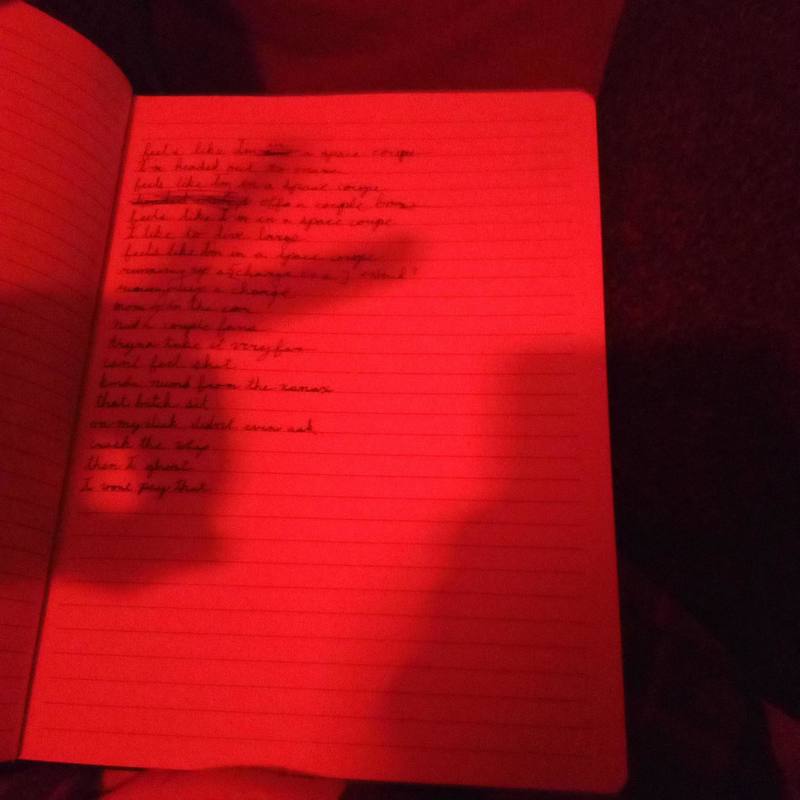 feels like I'm in a space coupe
I'm headed out to
feels like Im in a space coupe
of a couple
feels like I'm in a space coupe
I like to live large
feels like Im in a space coupe
running up a charge
running up a charge
mom's in the
with couple fans
tryna take it very far
cant feel shit
kinda numb from the xanax
that bitch sit
on my dick didnt even ask
crash the whip
then I ghost
I wont pay that